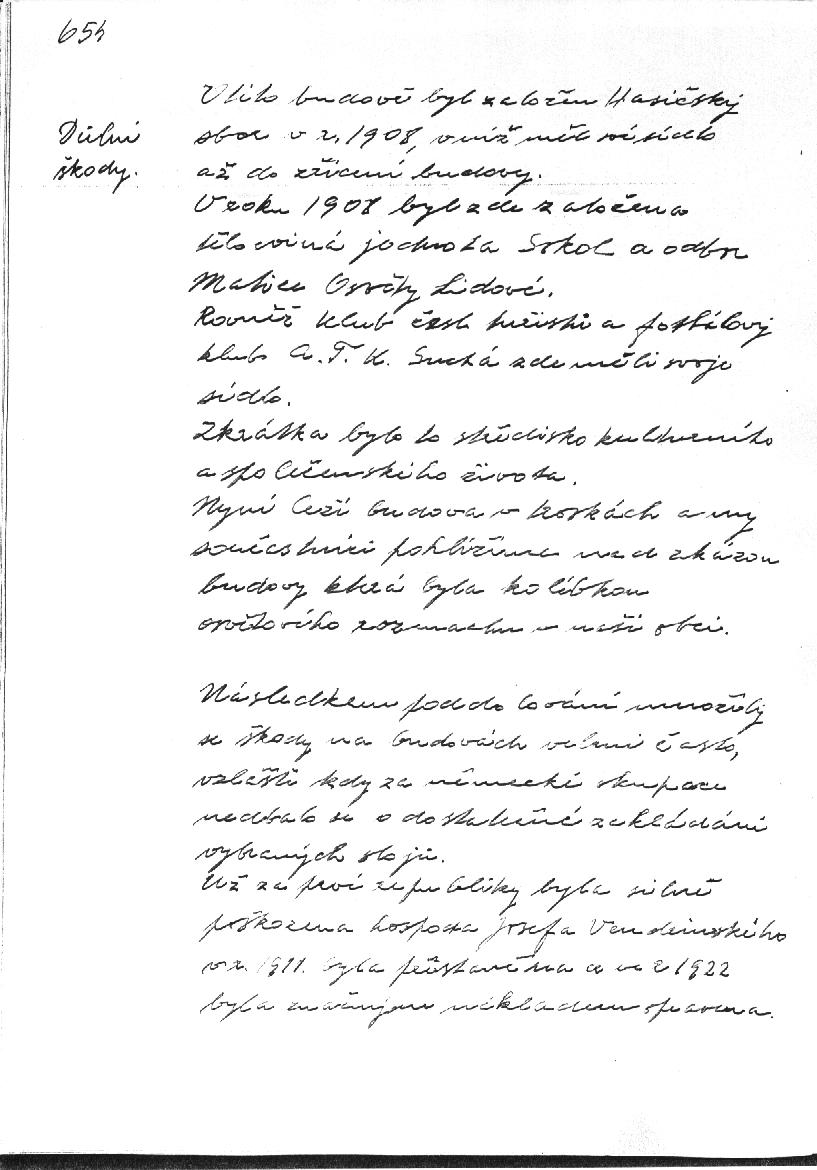 654
Důlní
škody.
V této budově byl založen Hasičský
sbor v r. 1908, v níž měl své sídlo
až do zřícení budovy.
V roku 1908 byla zde založena
tělocviná jednota Sokol a odbor
Matice Osvěty Lidové.
Rovněž klub česk. turistů a fotbalový
klub A.F.K. Suchá zde měli svoje
sídlo.
Zkrátka bylo to středisko kulturního
a společenského života.
Nyní leží budova v troskách a my
součastníci pohlížíme nad zkázou
budovy která byla kolíbkou
osvětového rozmachu v naší obci.
Následkem poddolování množily
se škody na budovách velmi často,
vzláště kdy za německé okupace
nedbalo se o dostatečné zakládání
vybraných slojů.
Už za prvé republiky byla silně
poškozena hospoda Josefa
v r. 1911. byla přistavěna a v r 1922
byla značným nákladem opravena.